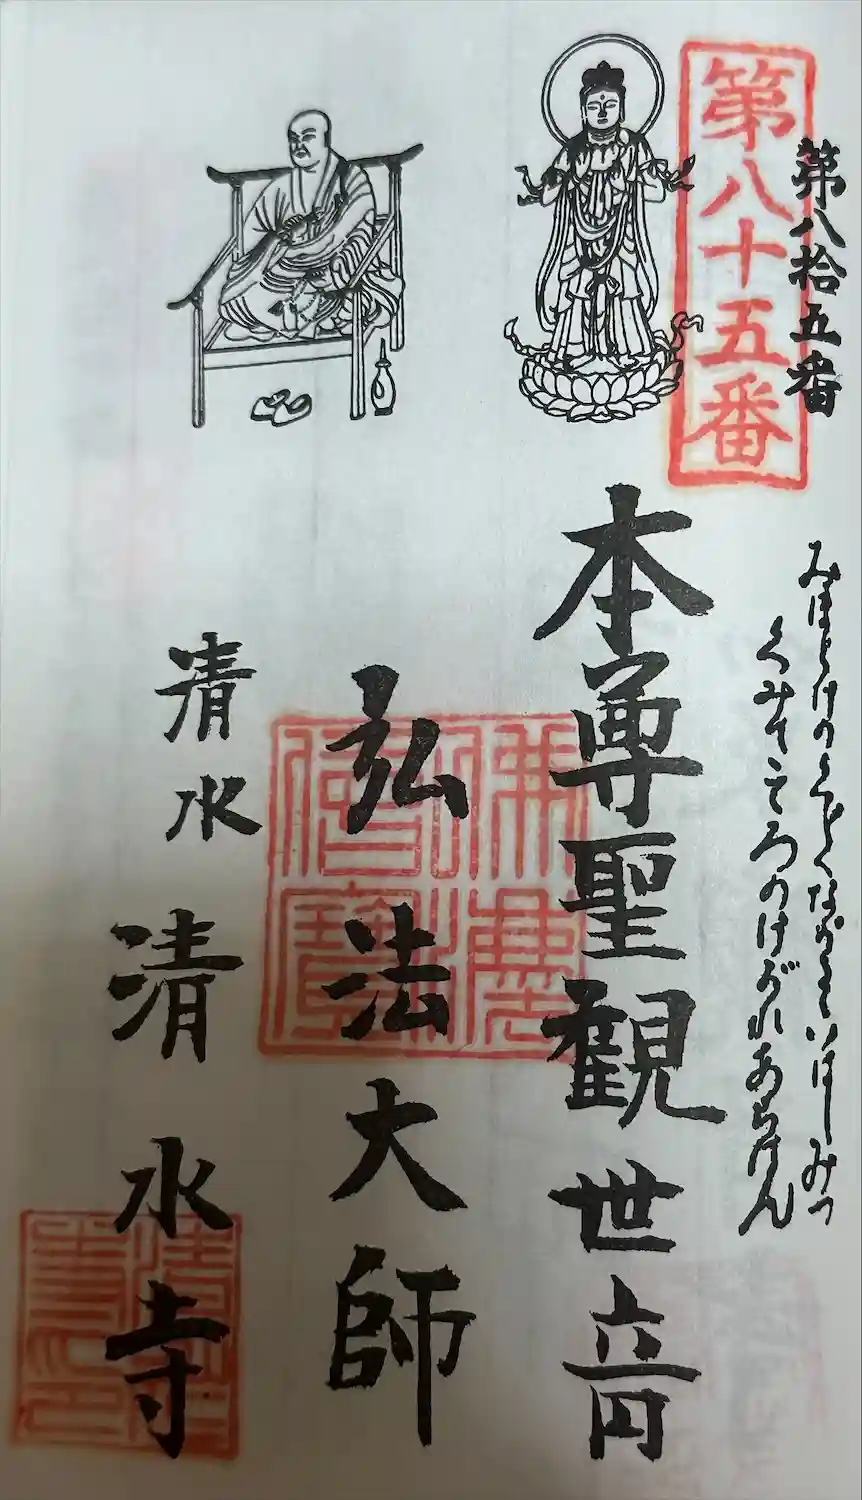 第八拾五番
第八十五番
みほとけのくどくながるゝいはしみづ
くみてこゝろのけがれあらはん
本尊聖観世音
弘法大師
清水
清水寺